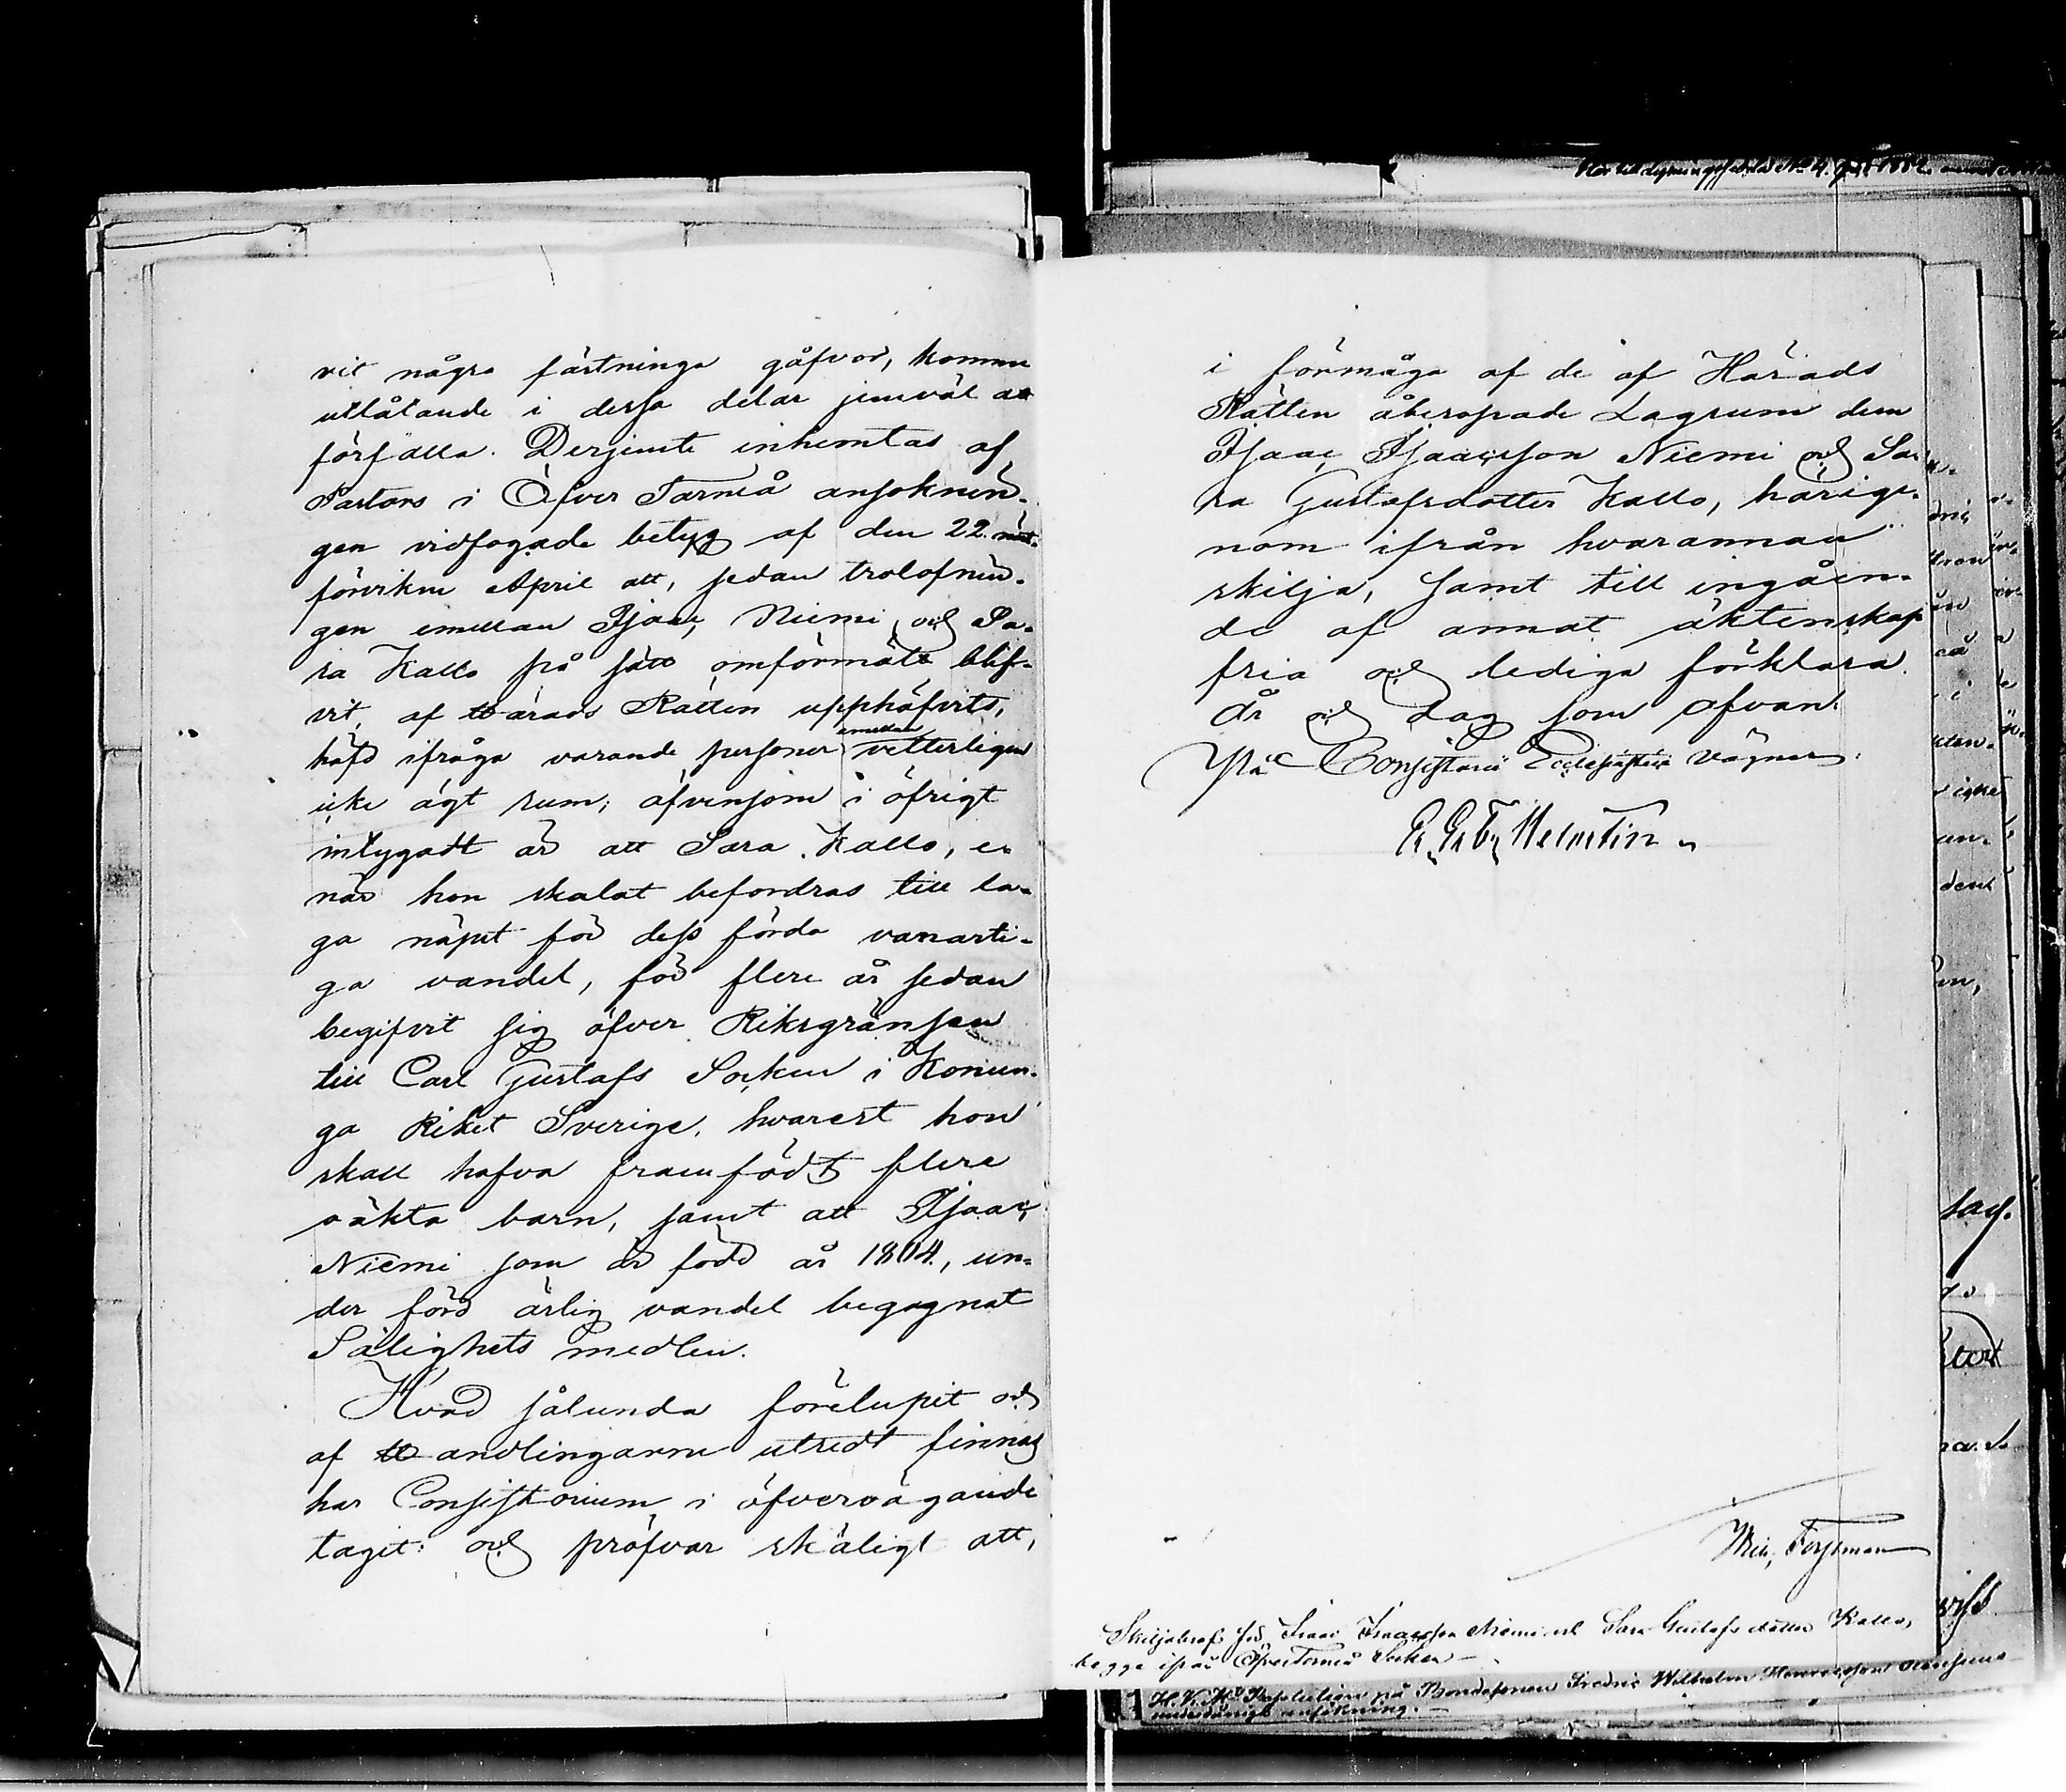 vit några fästninge gåfvor, komme
utlåtande i dessa delar jemväl att
förfalla. Derjemte inhemtas af
Pastors i Öfver Torneå ansöknin-
gen vidfogade betyg af den 22.
förvikne April att, sedan trolofnin-
gen emellan Isaac Niemi och Sa-
ra Kallo på sätt omförmält blif-
vit af Härads Rätten upphäfvits,
häfd ifråga varande personer emellan vetterligen
icke ägt rum; äfvensom i öfrigt
intygadt är att Sara Kallo, e-
när hon skolat befordras till la-
ga näpst för dess förda vanarti-
ga vandel, för flere år sedan
begifvit sig öfver Riksgränsen
till Carl Gustafs Socken i Konun-
ga Riket Sverige, hvarest hon
skall hafva framfödt flere
oäkta barn, samt att Isaac
Niemi som är född år 1804, un-
der förd ärlig vandel begagnat
Salighets medlen.
Hvad sålunda förelupit och
af Handlingarne utredt finnas
har Consistorium i öfvervägande
tagit: och pröfvar skäligt att,
i förmåga af de af Härads
Rätten åberopade Lagrum dem
Isaac Isaacsson Niemi och Sa-
ra Gustafsdotter Kallo, härige-
nom ifrån hvarannan
skilja, samt till ingåen-
de af annat äktenskap
fria och lediga förklara.
År och dag som ofvan.
På Consistorii Ecclesiastici vägnar:
Forssman
Skiljobref för Isaac Isaacsson Niemi och Sara Gustafs dotter Kallo,
begge ifrån ÖfverTorneå Socken
H. K. M:ts Resolution på Bondesonen Fredric Wilhelm
underdåniga ansökning.